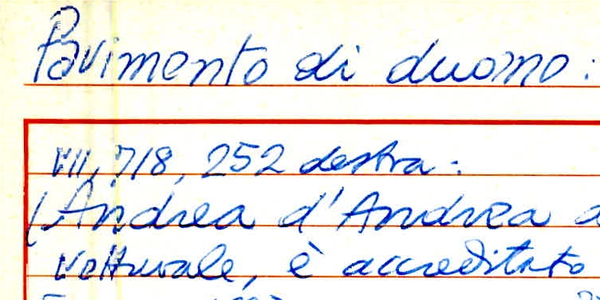 Pavimento di duomo:
VII, 7/8, 252 destra:
(Andrea d'Andrea a
vetturale, è accreditato